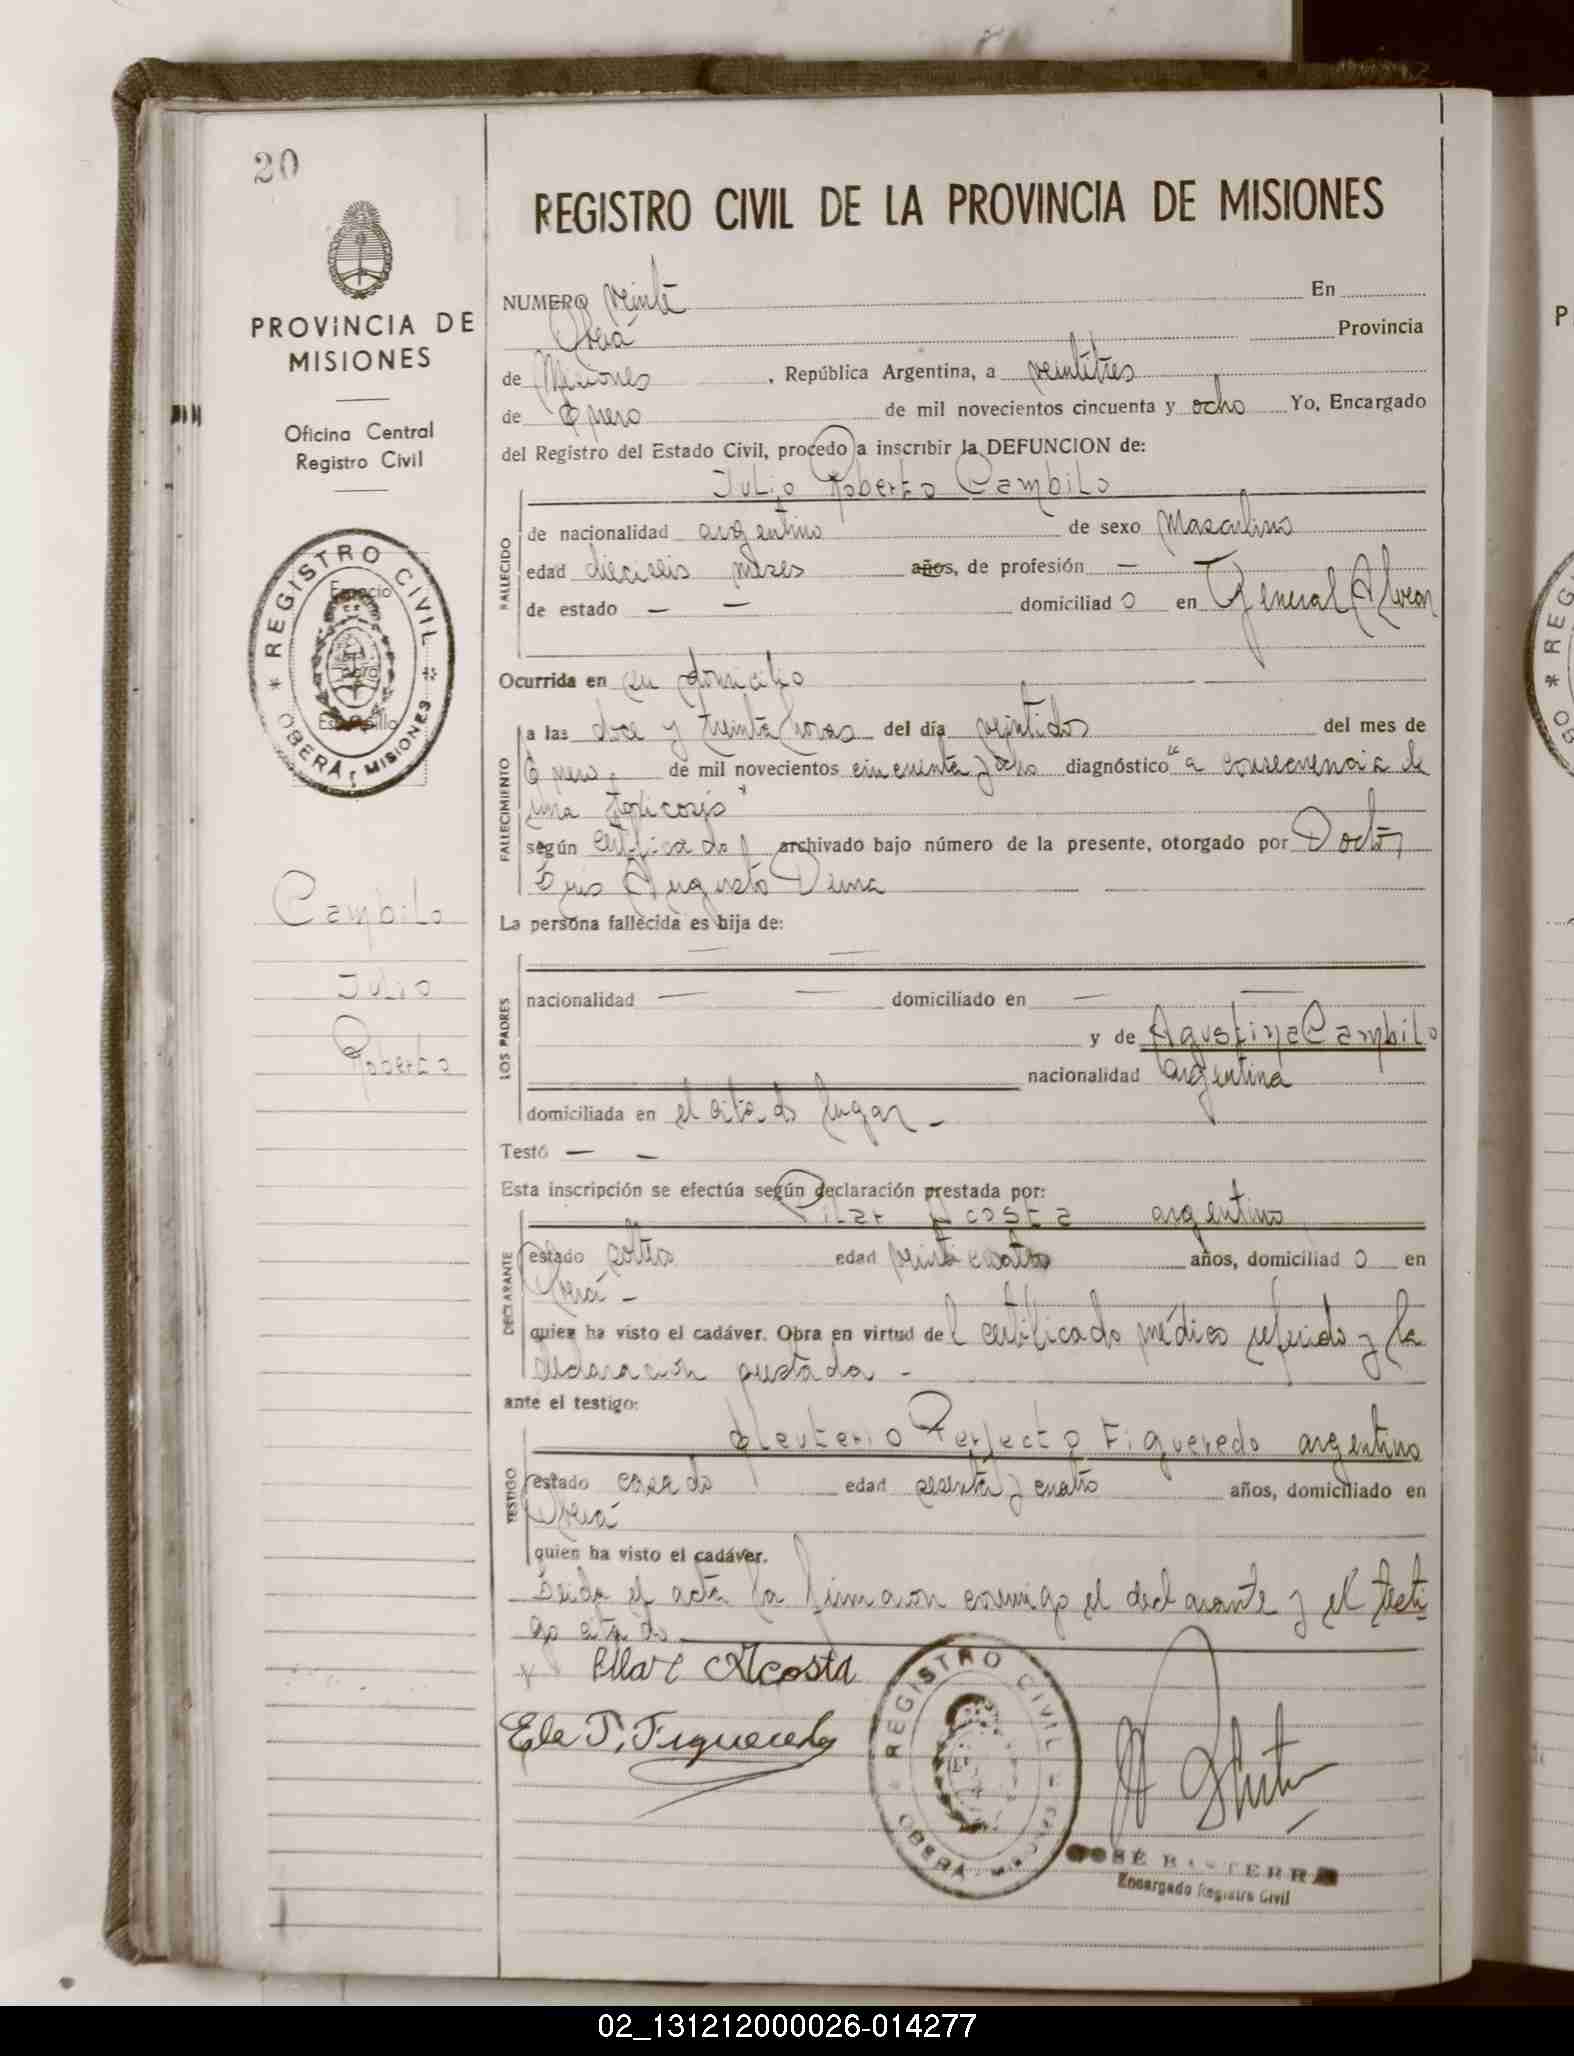 20
PROVINCIA DE
MISIONES
Oficina Central
Registro Civil
REGISTRO CIVIL
OBERÁ, MISIONES
Cambilo
Julio
Roberto
REGISTRO CIVIL DE LA PROVINCIA DE MISIONES
NUMERO veinte En
Oberá Provincia
de Misiones, República Argentina, a veintitres
de Enero de mil novecientos cincuenta y ocho Yo, Encargado
del Registro del Estado Civil, procedo a inscribir la DEFUNCION de:
Julio Roberto Cambilo
FALLECIDO
de nacionalidad argentino de sexo Masculino
edad dieciseis meses años, de profesión — —
de estado — — domiciliad o en General Alvear
Ocurrida en su domicilio
FALLECIMIENTO
a las doce y treinta horas del día veintidos del mes de
Enero, de mil novecientos cincuenta y ocho diagnóstico "a consecuencia de
una toxicosis"
según certificado archivado bajo número de la presente, otorgado por Doctor
Augusto
La persona fallecida es hija de:
— —
LOS PADRES
nacionalidad — — domiciliado en — —
y de Agustina Cambilo
nacionalidad argentina
domiciliada en el citado lugar -
Testó — —
Esta inscripción se efectúa según declaración prestada por:
DECLARANTE
Pilar Acosta argentino
estado soltero edad años, domiciliad o en
Oberá -
quien ha visto el cadáver. Obra en virtud del certificado médico referido y la
declaración prestada -
ante el testigo:
TESTIGO
Eleuterio Perfecto Figueredo argentino
estado casado edad sesenta y cuatro años, domiciliado en
Oberá
quien ha visto el cadáver.
Leida el acta la firmaron conmigo el declarante y el testi
go citado
Pilar Acosta
Ele P. Figueredo
REGISTRO CIVIL
OBERÁ
JOSÉ BASTERRA
Encargado Registro Civil
02_131212000026-014277